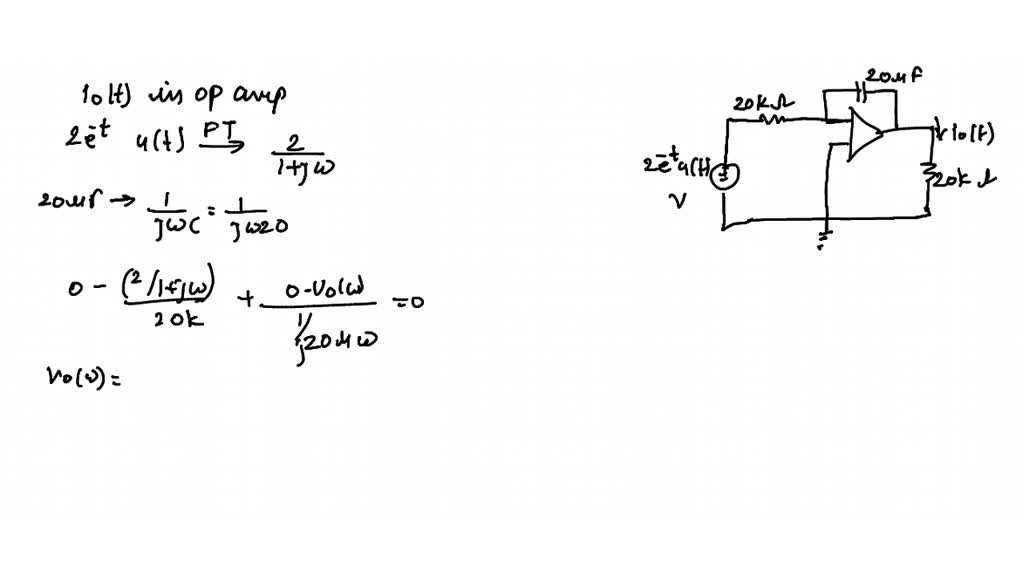 Io(t) in op amp
2e^-t u(t) FT→ 2/(1+jω)
20μF → 1/jωC = 1/jω20
0 - (2/1+jω)/20k + (0-Vo(ω))/(1/j20μω) = 0
Vo(ω) =
20μF
20kΩ
Io(t)
2e^-t u(t)
V
20kΩ